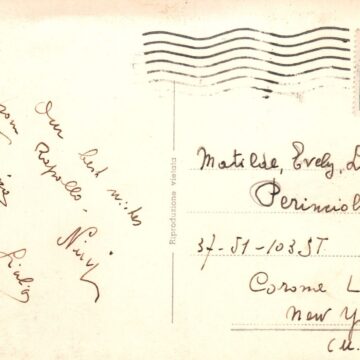 Our best wishes
Rapallo -
Riproduzione Vietata
Matilde, Evely, L
Perinciol
37-51-103 ST
Corome L
New Y
(U.